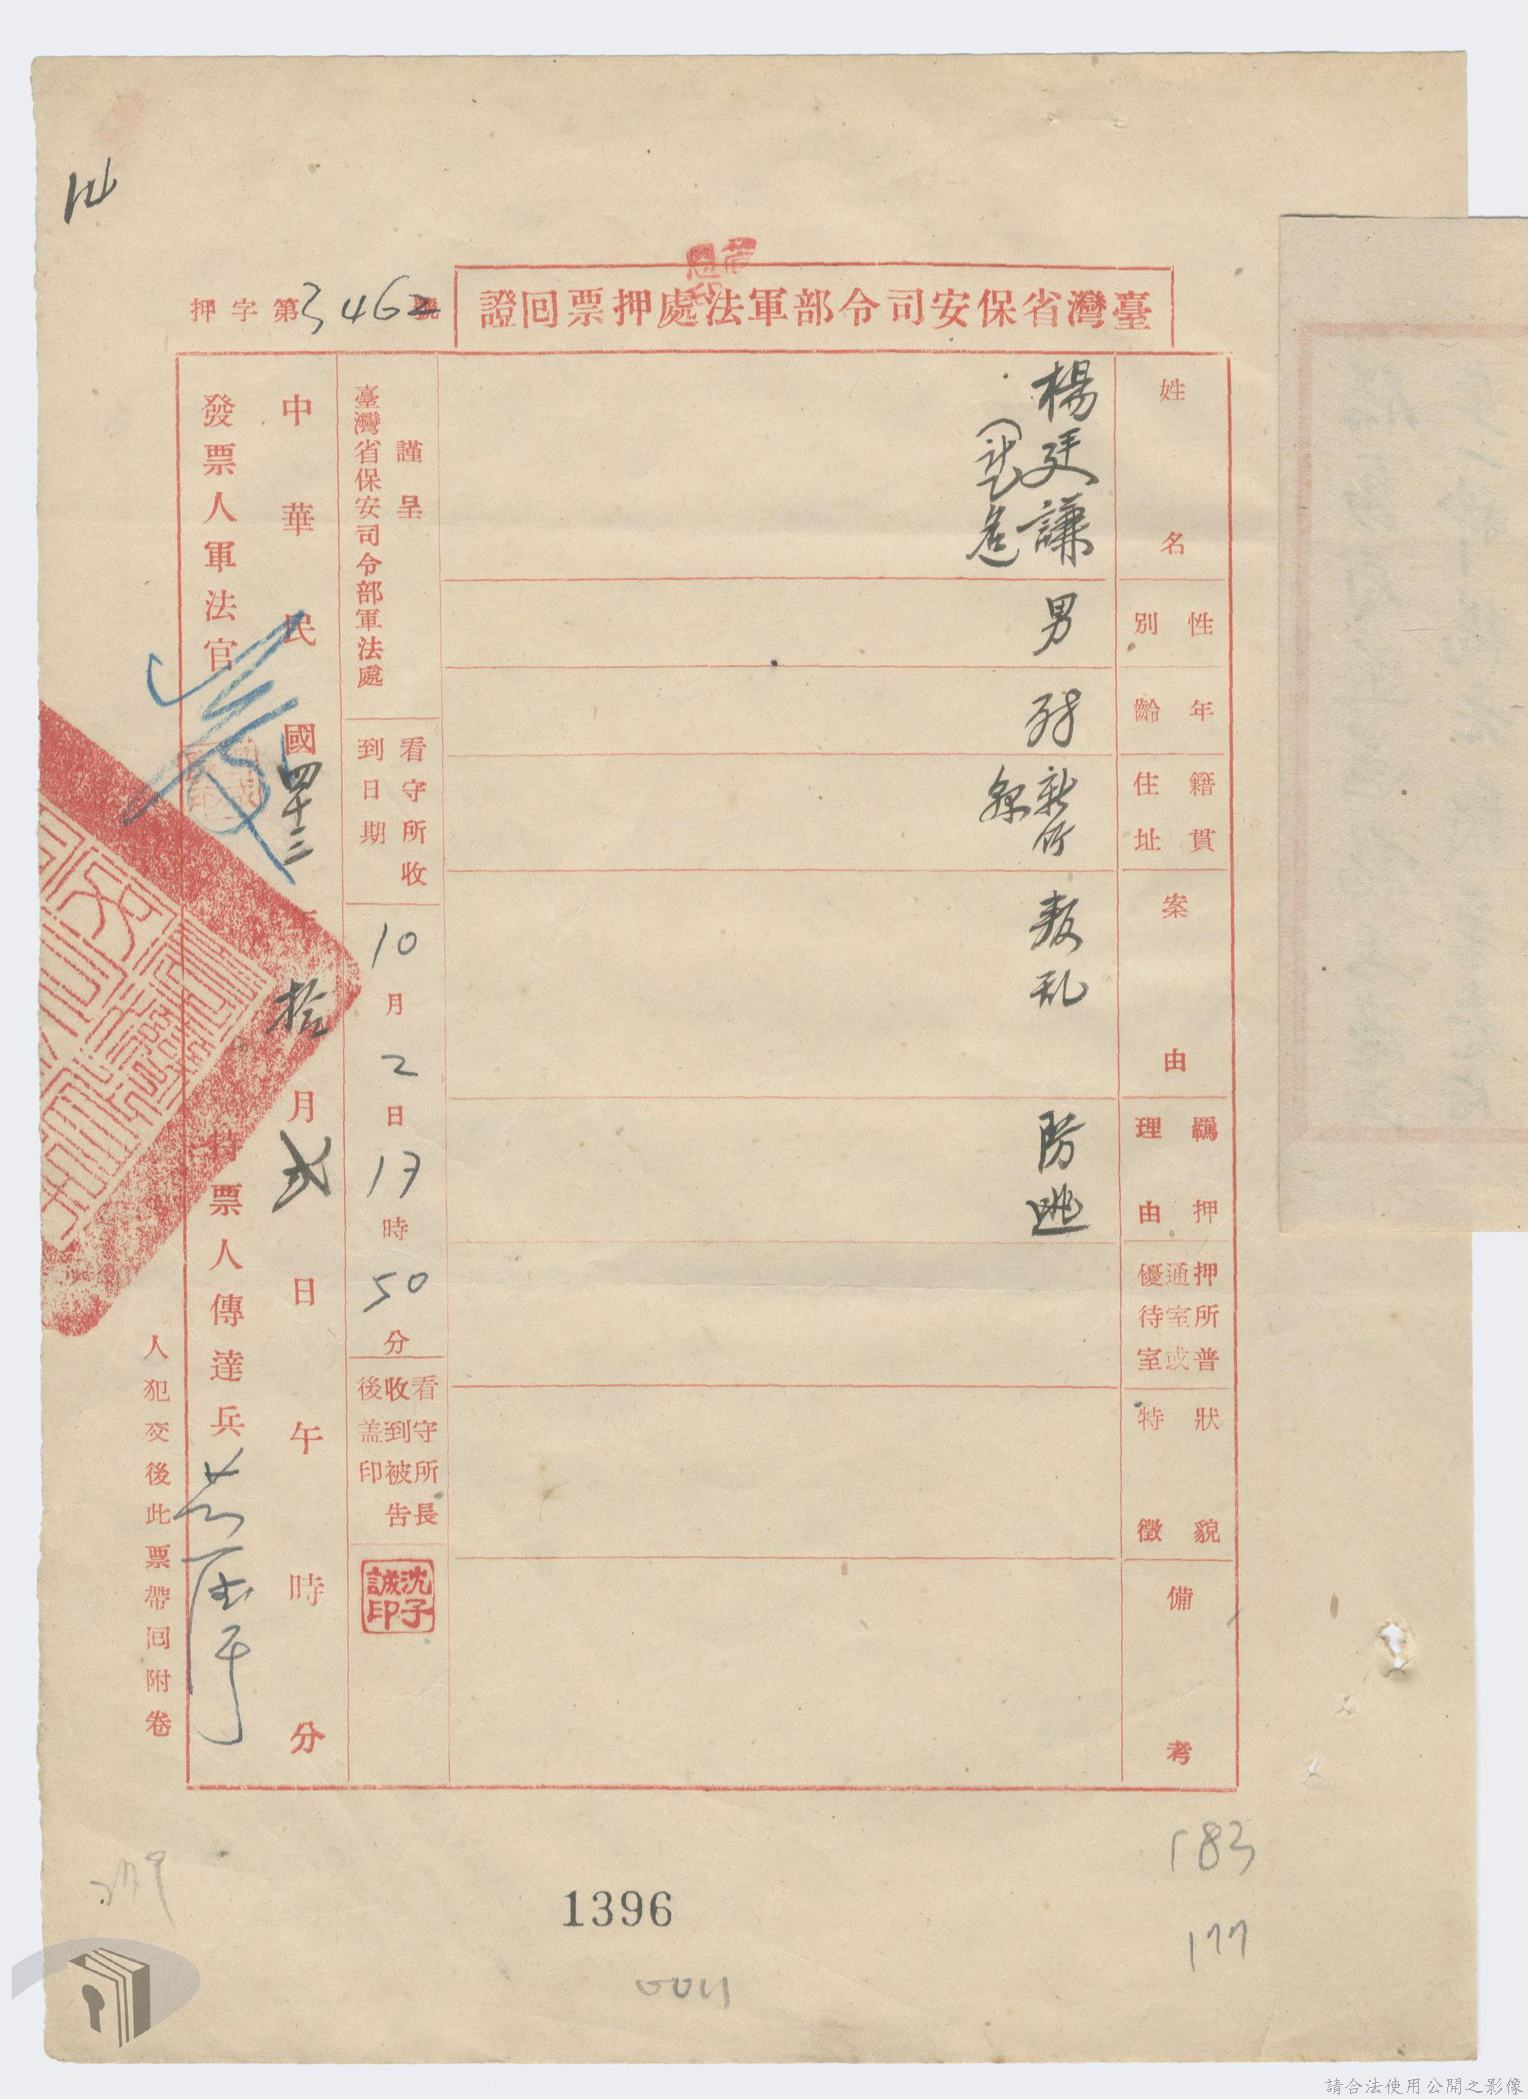 臺灣省保安司令部軍法處押票回證
押字第3462號
姓名
楊廷謙
性別
男
年齡
籍貫住址
新竹縣
案由
叛乱
羈押理由
防逃
押所普通室或優待室
狀貌特徵
備考
謹呈
臺灣省保安司令部軍法處
看守所收到日期
10月2日17時50分
看守所長收到被告後盖印
沈子誠印
中華民國四十三年拾月弍日午時分
發票人軍法官
持票人傳達兵
人犯交後此票帶回附卷
183
177
1396
請合法使用公開之影像